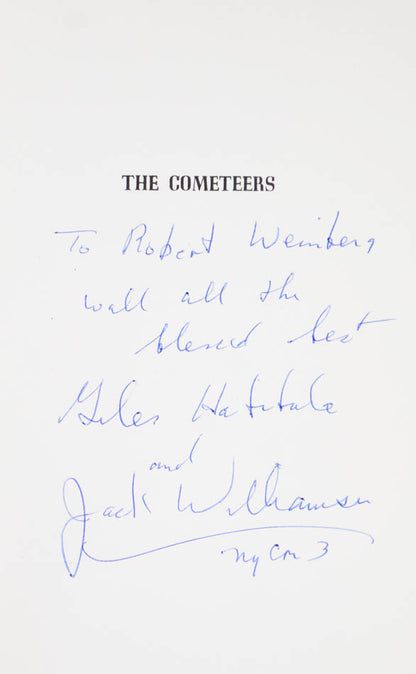 THE COMETEERS
To Robert Weinberg
with all the
blessed best
Giles Habibula
and
Jack Williamson
NyCon 3